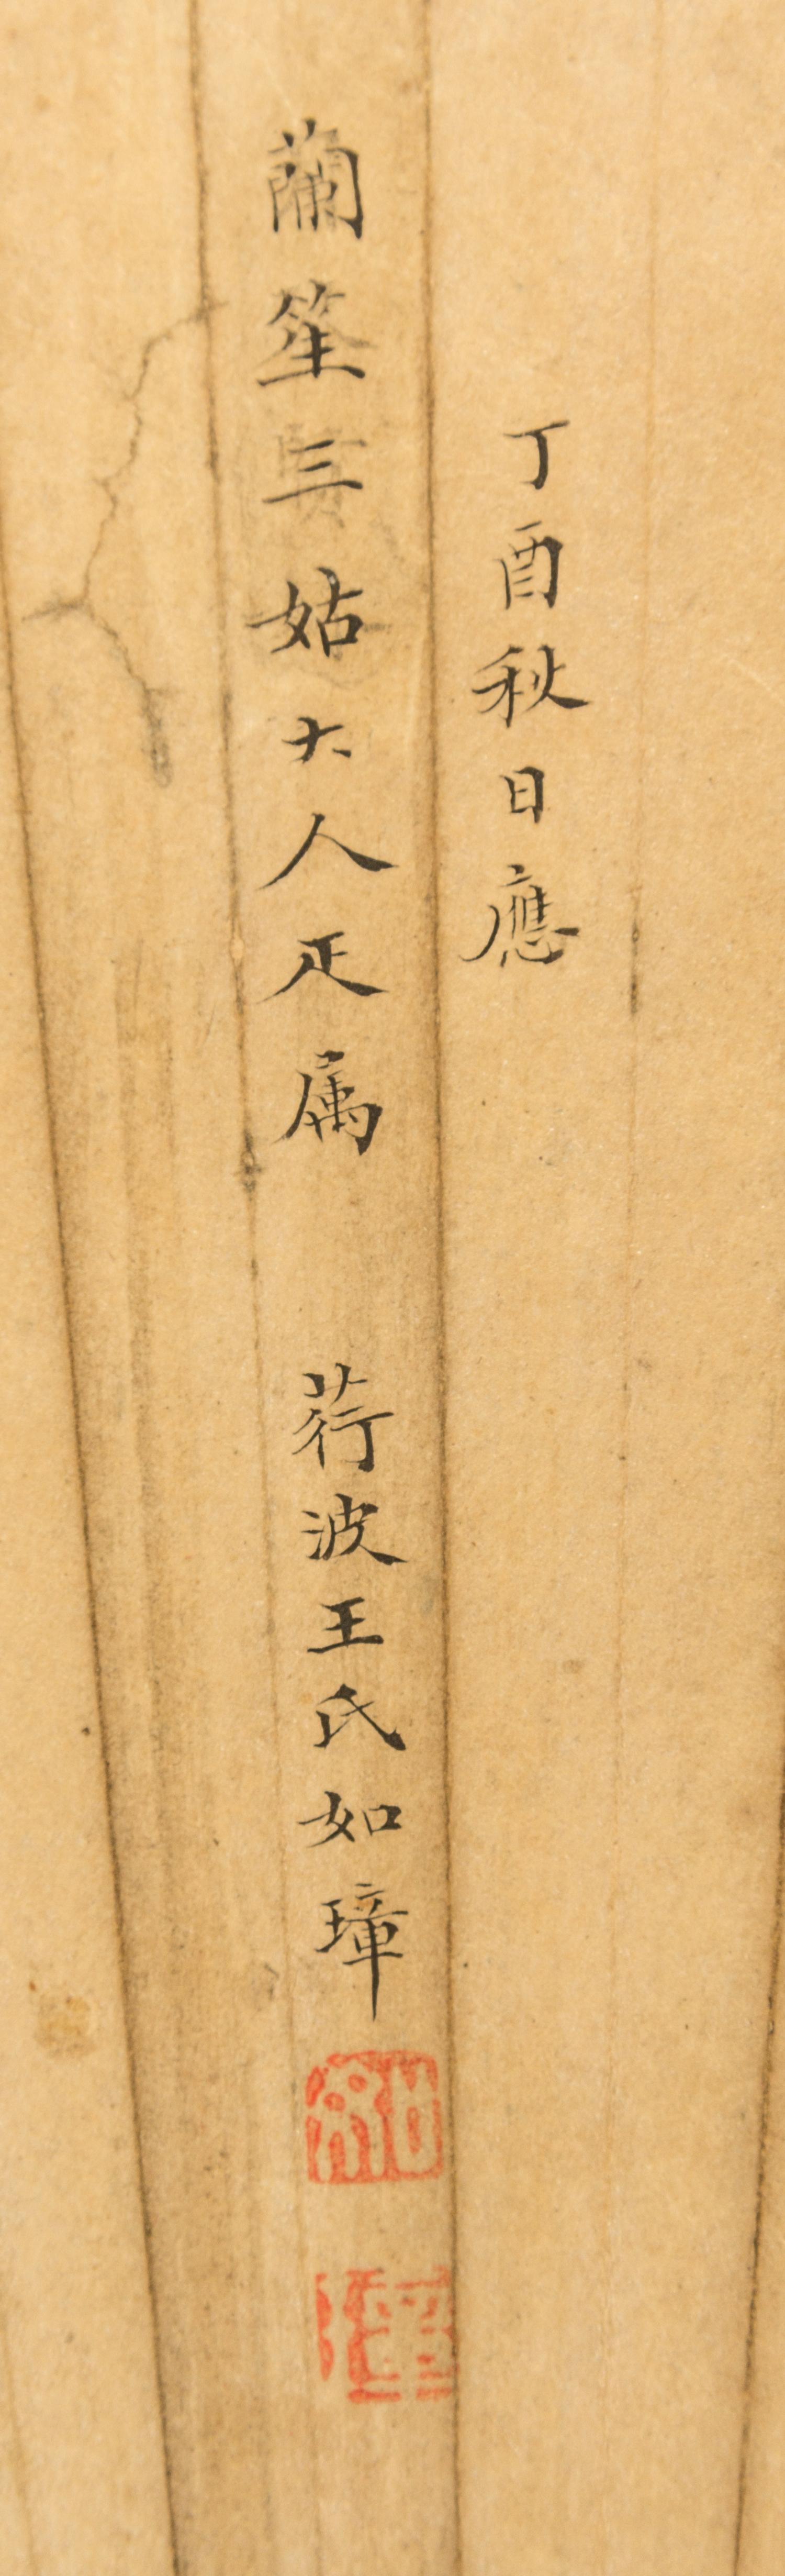 丁酉秋日應
蘭笙三姑大人正属
荇波王氏如璋